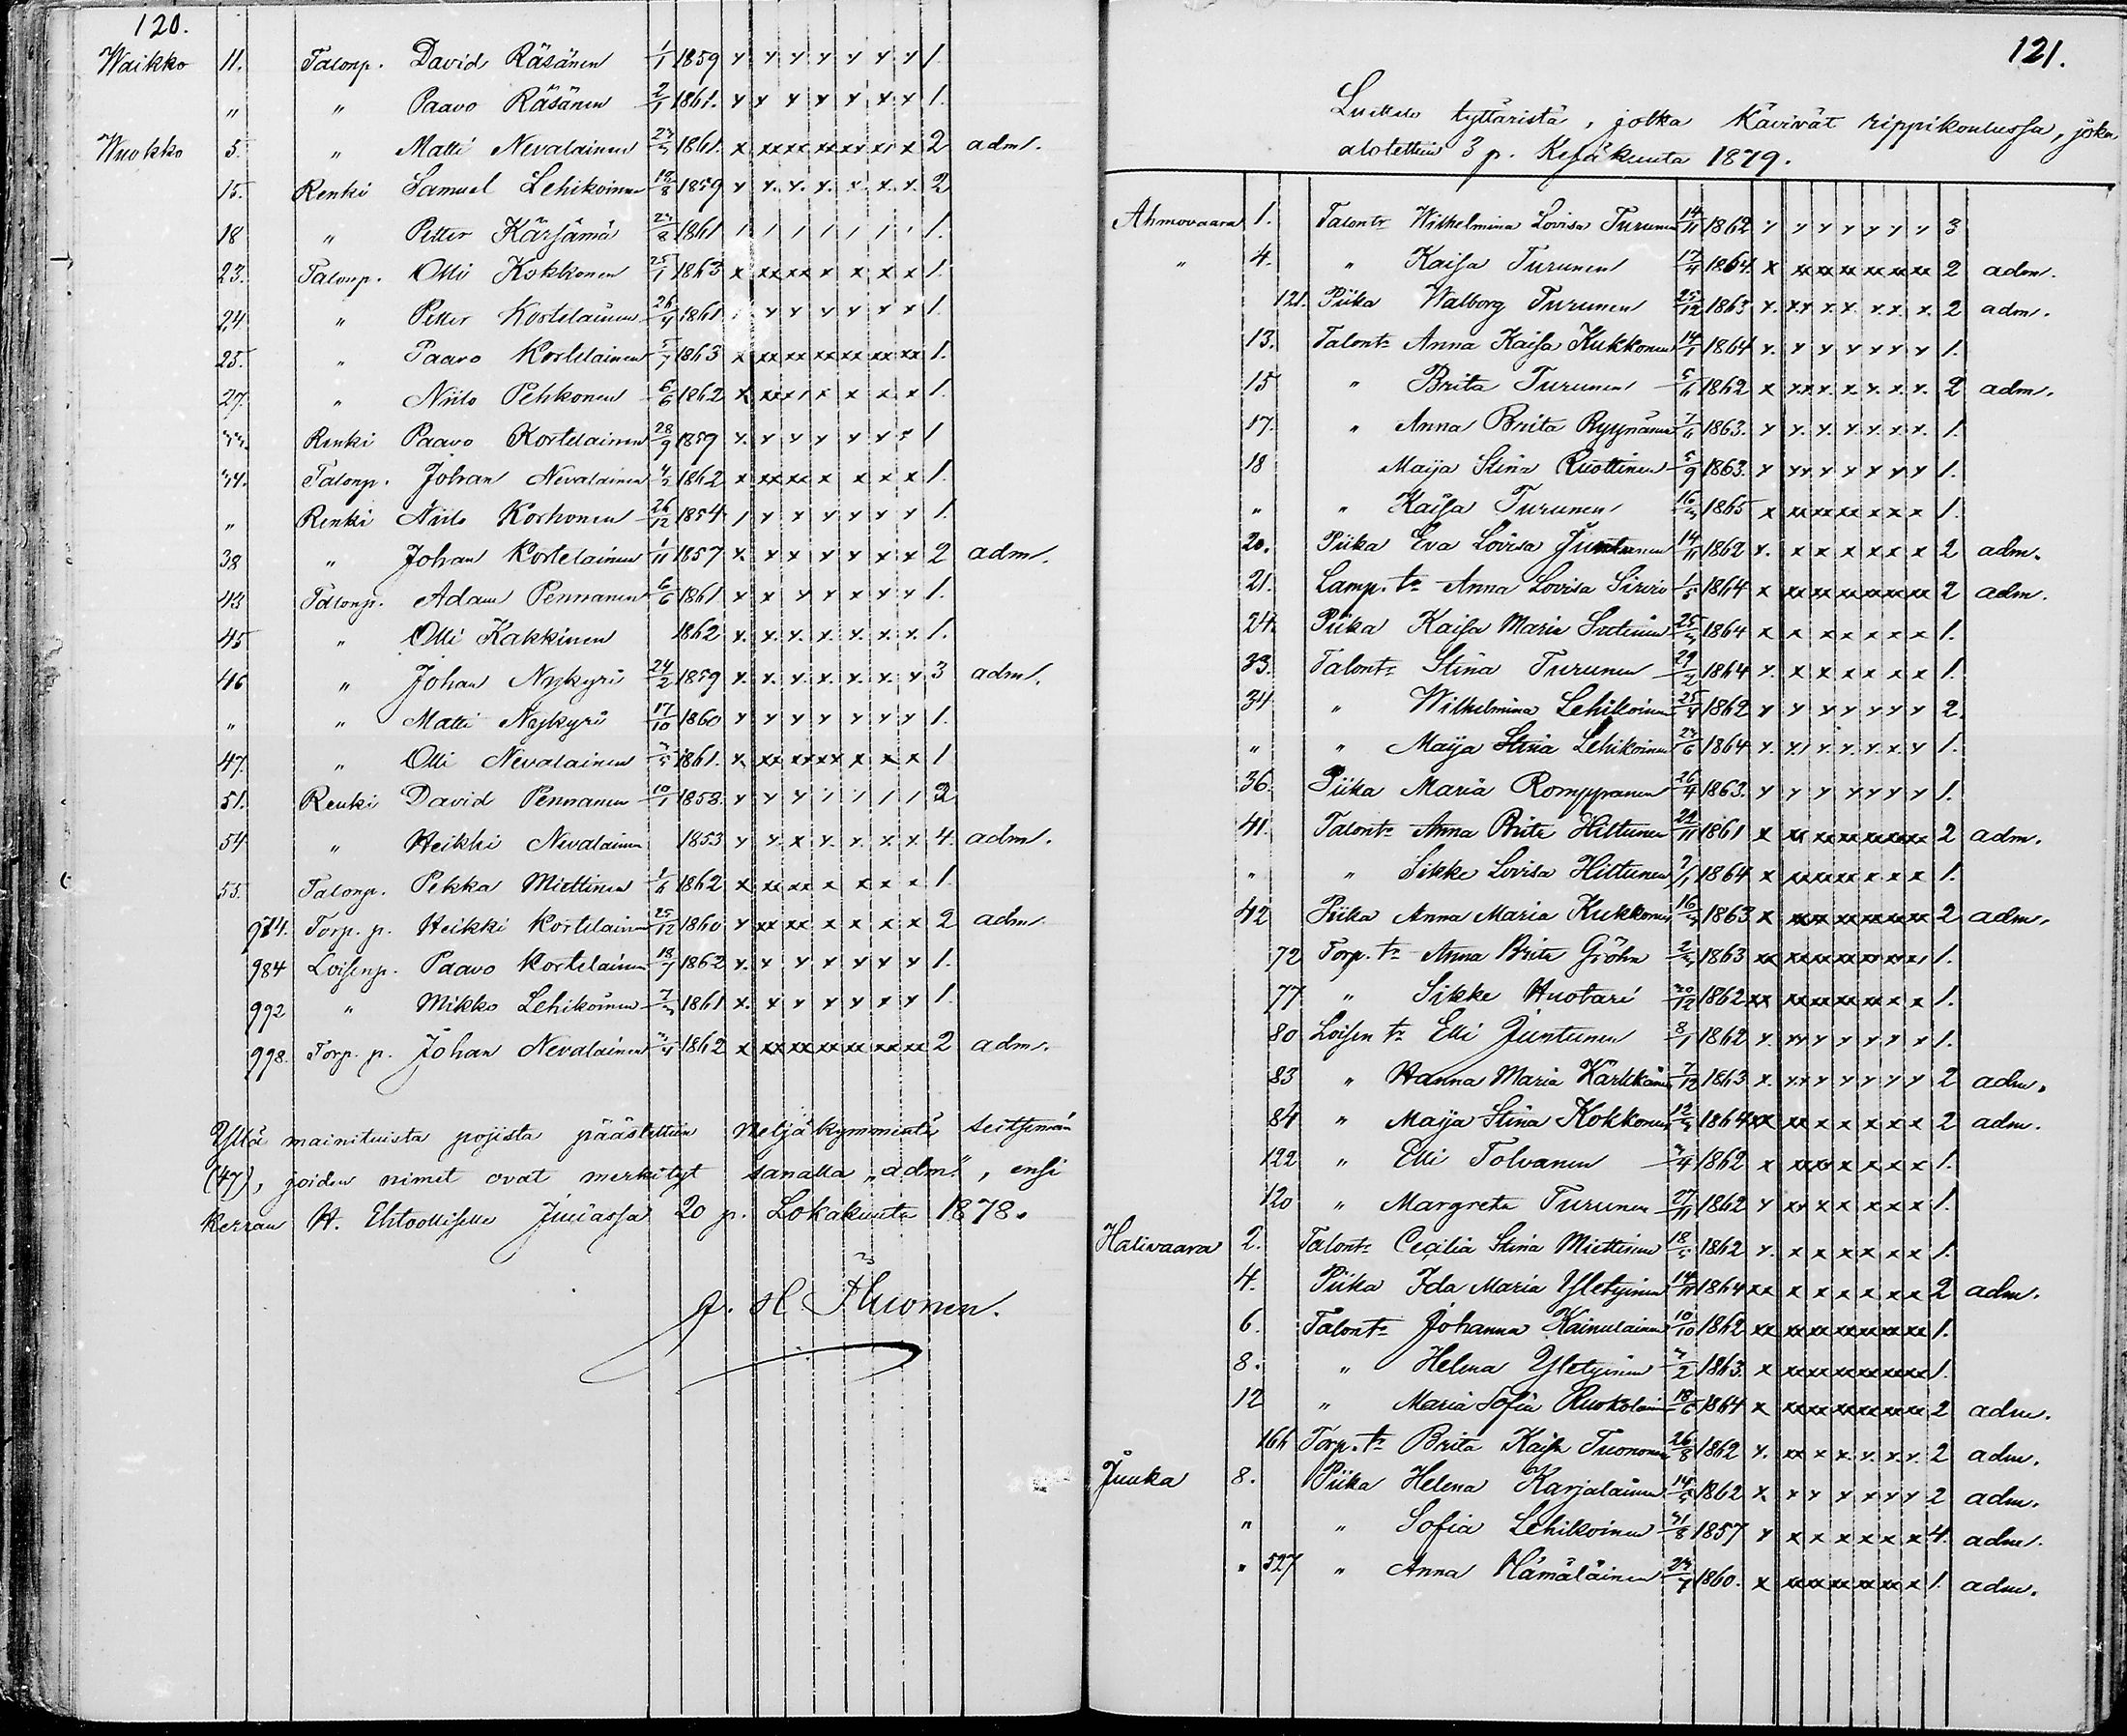 120.
Waikko 11. Talonp. David Räsänen 1/1 1859 x x x x x x x 1.
" " Paavo Räsänen 2/1 1861. x x x x x x x 1.
Wuokko 5. " Matti Nevalainen 1861. x xx xx xx xx x 2 adm.
15. Renki Samuel Lehikoinen 1859 x x. x. x. x. x. x. 2
18 " Petter Kärsämä 1861 / / / / / / / 1.
23. Talonp. Olli Kokkonen 25/1 1863 x xx xx x x x x 1.
24 " Petter Kortelainen 26/4 1861 / x x x x x x 1.
25. " Paavo Kortelainen 1863 x xx xx xx xx xx xx 1.
27. " Niilo Pehkonen 6/6 1862 x x x x x x 1.
33. Renki Paavo Kortelainen 28/9 1859 x. x x x x x 1
34. Talonp. Johan Nevalainen 1862 x xx xx x x x x 1.
" Renki Niilo Korhonen 26/12 1854 / x x x x x x 1.
38 " Johan Kortelainen 1/11 1857 x. x x x x x x 2 adm.
43 Talonp. Adam Pennanen 6/6 1861 x x x x x x x 1.
45 " Olli Kakkinen 1862 x. x. x. x. x. x. x. 1.
46 " Johan Nykyri 24/2 1859 x. x. x x. x. x. x 3 adm.
" " Matti Nykyri 17/10 1860 x x x x x x x 1.
47. " Olli Nevalainen 1861. x xx xx xx x x x 1
51. Renki David Pennanen 10/1 1858. x x x / / / / 2
54 " Heikki Nevalainen 1853 x x. x x. x. x. x. 4. adm.
55. Talonp. Pekka Miettinen 1862 x xx xx x x x x 1.
974. Torp. p. Heikki Kortelainen 25/12 1860 x xx xx x x x x 2 adm
984 Loisenp. Paavo Kortelainen 1862 x. x x x x x x 1.
992 " Mikko Lehikoinen 1861 x. x x x x x x 1
998. Torp. p. Johan Nevalainen 1862 x xx xx xx xx xx xx 2 adm.
Yllä mainituista pojista päästettiin neljäkymmentä seitsemän
(47), joiden nimet ovat merkityt sanalla "adm.", ensi
kerran H. Ehtoolliselle Juuassa 20 p. Lokakuuta 1878.
121.
Luettelo tyttäristä, jotka kävivät rippikoulussa, joka
alotettiin 3 p. Kesäkuuta 1879.
Ahmovaara 1. Talontr Wilhelmina Lovisa Turunen 14/11 1862 x x x x x x x 3
" 4. " Kaisa Turunen 17/4 1864. x xx xx xx xx xx xx 2 adm.
121. Piika Walborg Turunen 25/12 1863 x. xx x. x. x. x. x. 2 adm.
13. Talontr Anna Kaisa Kukkonen 14/1 1864 x. x x x x x x 1.
15 " Brita Turunen 1862 x xx x. x. x. x. x. 2 adm.
17. " Anna Brita Ryynänen 1863. x x. x. x. x. x. x. 1.
18 Maija Stina Ruottinen 5/9 1863. x xx x x x x x 1.
" " Kaisa Turunen 16/3 1865 x xx xx x x x x 1.
20. Piika Eva Lovisa Juntunen 14/11 1862 x. x x x x x x 2 adm.
21. Lamp. tr Anna Lovisa Sirviö 1/5 1864 x xx xx xx xx xx xx 2 adm.
24. Piika Kaisa Maria Sutinen 25/3 1864 x x x x x x x 1.
33. Talontr Stina Turunen 29/2 1864 x. x x x x x x 1.
34 " Wilhelmina Lehikoinen 1862 x x x x x x x 2.
" " Maija Stina Lehikoinen 1864 x. x x. x. x. x. x 1.
36. Piika Maria Romppanen 26/4 1863. x x x x x x x 1.
41. Talontr Anna Brita Hiltunen 1861 x xx xx xx xx xx xx 2 adm.
" " Sikke Lovisa Hiltunen 1864 x xx xx x x x 1.
42 Piika Anna Maria Kukkonen 1863 x xx xx xx xx xx xx 2 adm.
72 Torp. tr Anna Brita Gröhn 2/3 1863 xx xx xx xx xx xx x 1.
77 " Sikke Huotari 30/12 1862 xx xx xx xx xx x x 1.
80 Loisen tr Elli Juntunen 8/1 1862 x. xx x x x x x 1.
83 " Hanna Maria Karkkainen 7/12 1863 x. xx x x x x x 2 adm.
84 " Maija Stina Kokkonen 12/3 1864 xx xx x x x x x 2 adm.
122 " Elli Tolvanen 1862 x xx xx x x x x 1.
120 " Margreta Turunen 27/11 1862 x xx x x x x x 1.
Halivaara 2. Talontr Cecilia Stina Miettinen 18/5 1862 x. x x x x x x 1.
4. Piika Ida Maria Yletyinen 14/11 1864 xx x x x x x x 2 adm.
6. Talontr Johanna Kainulainen 10/10 1862 xx xx xx xx xx xx xx 1.
8. " Helena Yletyinen 3/2 1863. x xx xx xx xx xx xx 1.
12 " Maria Sofia Ruokolainen 18/6 1864 x xx xx xx xx xx xx 2 adm.
166 Torp. tr Brita Kaisa Tuononen 26/8 1862 x. xx x x. x. x. x. 2 adm.
Juuka 8. Piika Helena Karjalainen 14/5 1862 x. x x x x x x 2 adm.
" " Sofia Lehikoinen 31/8 1857 x x x x x x x 4. adm.
" 527 " Anna Hämäläinen 1860. x xx xx xx xx xx x 1. adm.